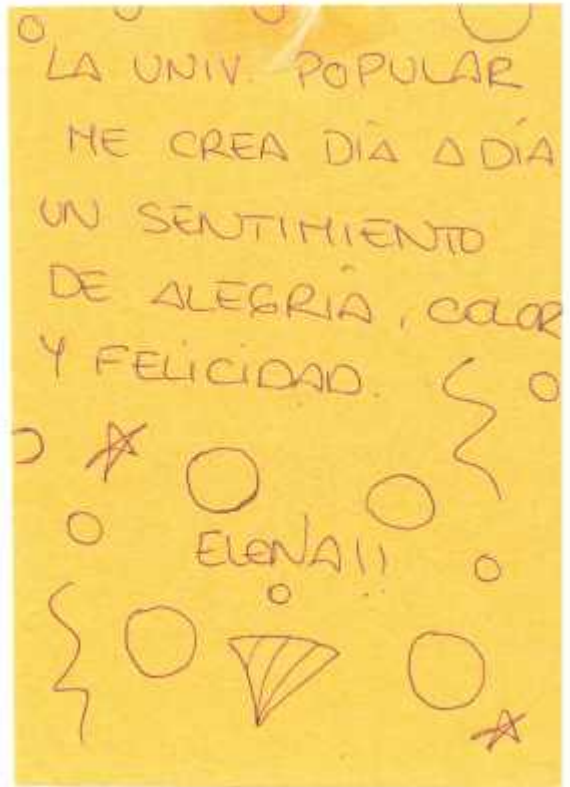 LA UNIV. POPULAR
ME CREA DÍA A DÍA
UN SENTIMIENTO
DE ALEGRÍA, COLOR
Y FELICIDAD.
ELENA!!